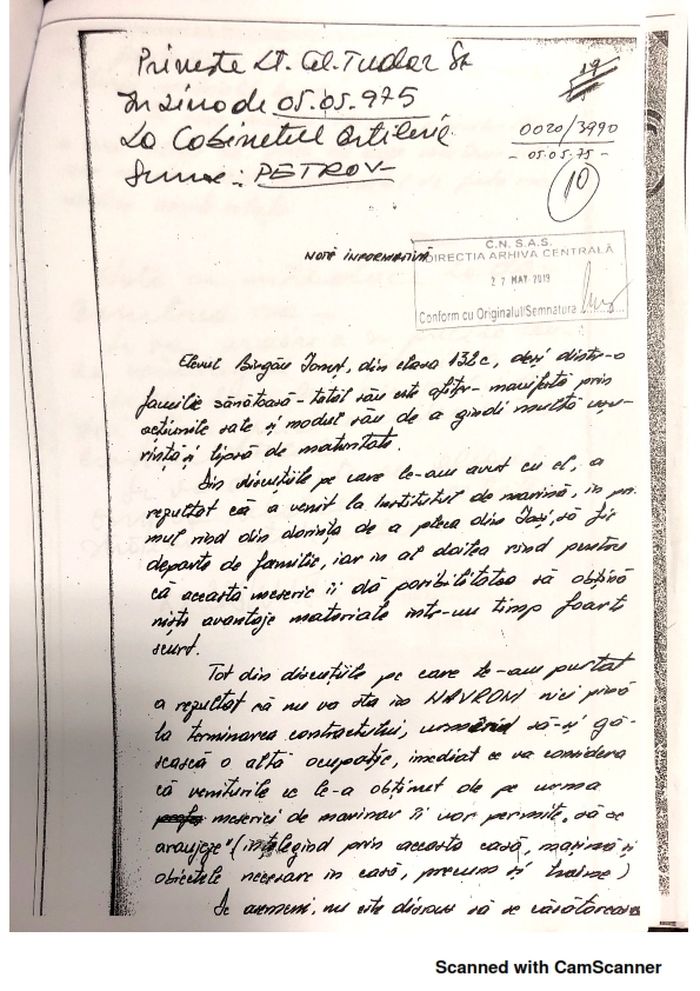 Privește Lt. Col. Tudor St
În ziua de 05.05.975
La Cabinetul artilerie
Sursa: PETROV
19
0020/3990
- 05.05.75 -
10
NOTĂ INFORMATIVĂ
C.N.S.A.S.
DIRECTIA ARHIVA CENTRALĂ
27 MAY 2019
Conform cu Originalul Semnatura
Elevul Ionuț, din clasa 132c, deși dintr-o
familie sănătoasă - tatăl său este ofițer - manifestă prin
acțiunile sale și modul său de a gîndi multă ușu-
rință și lipsă de maturitate.
Din discuțiile pe care le-am avut cu el, a
rezultat că a venit la Institutul de marină, în pri-
mul rînd din dorința de a pleca din Iași, să fie
departe de familie, iar în al doilea rînd pentru
că această meserie îi dă posibilitatea să obțină
niște avantaje materiale într-un timp foarte
scurt.
Tot din discuțiile pe care le-am purtat
a rezultat că nu va sta în NAVROM nici pînă
la terminarea contractului, urmărind să-și gă-
sească o altă ocupație, imediat ce va considera
că veniturile ce le-a obținut de pe urma
meseriei de marinar îi vor permite „să se
aranjeze" (înțelegînd prin aceasta casă, mașină și
obiectele necesare în casă, precum și haine)
De asemeni, nu este dispus să se căsătorească
Scanned with CamScanner